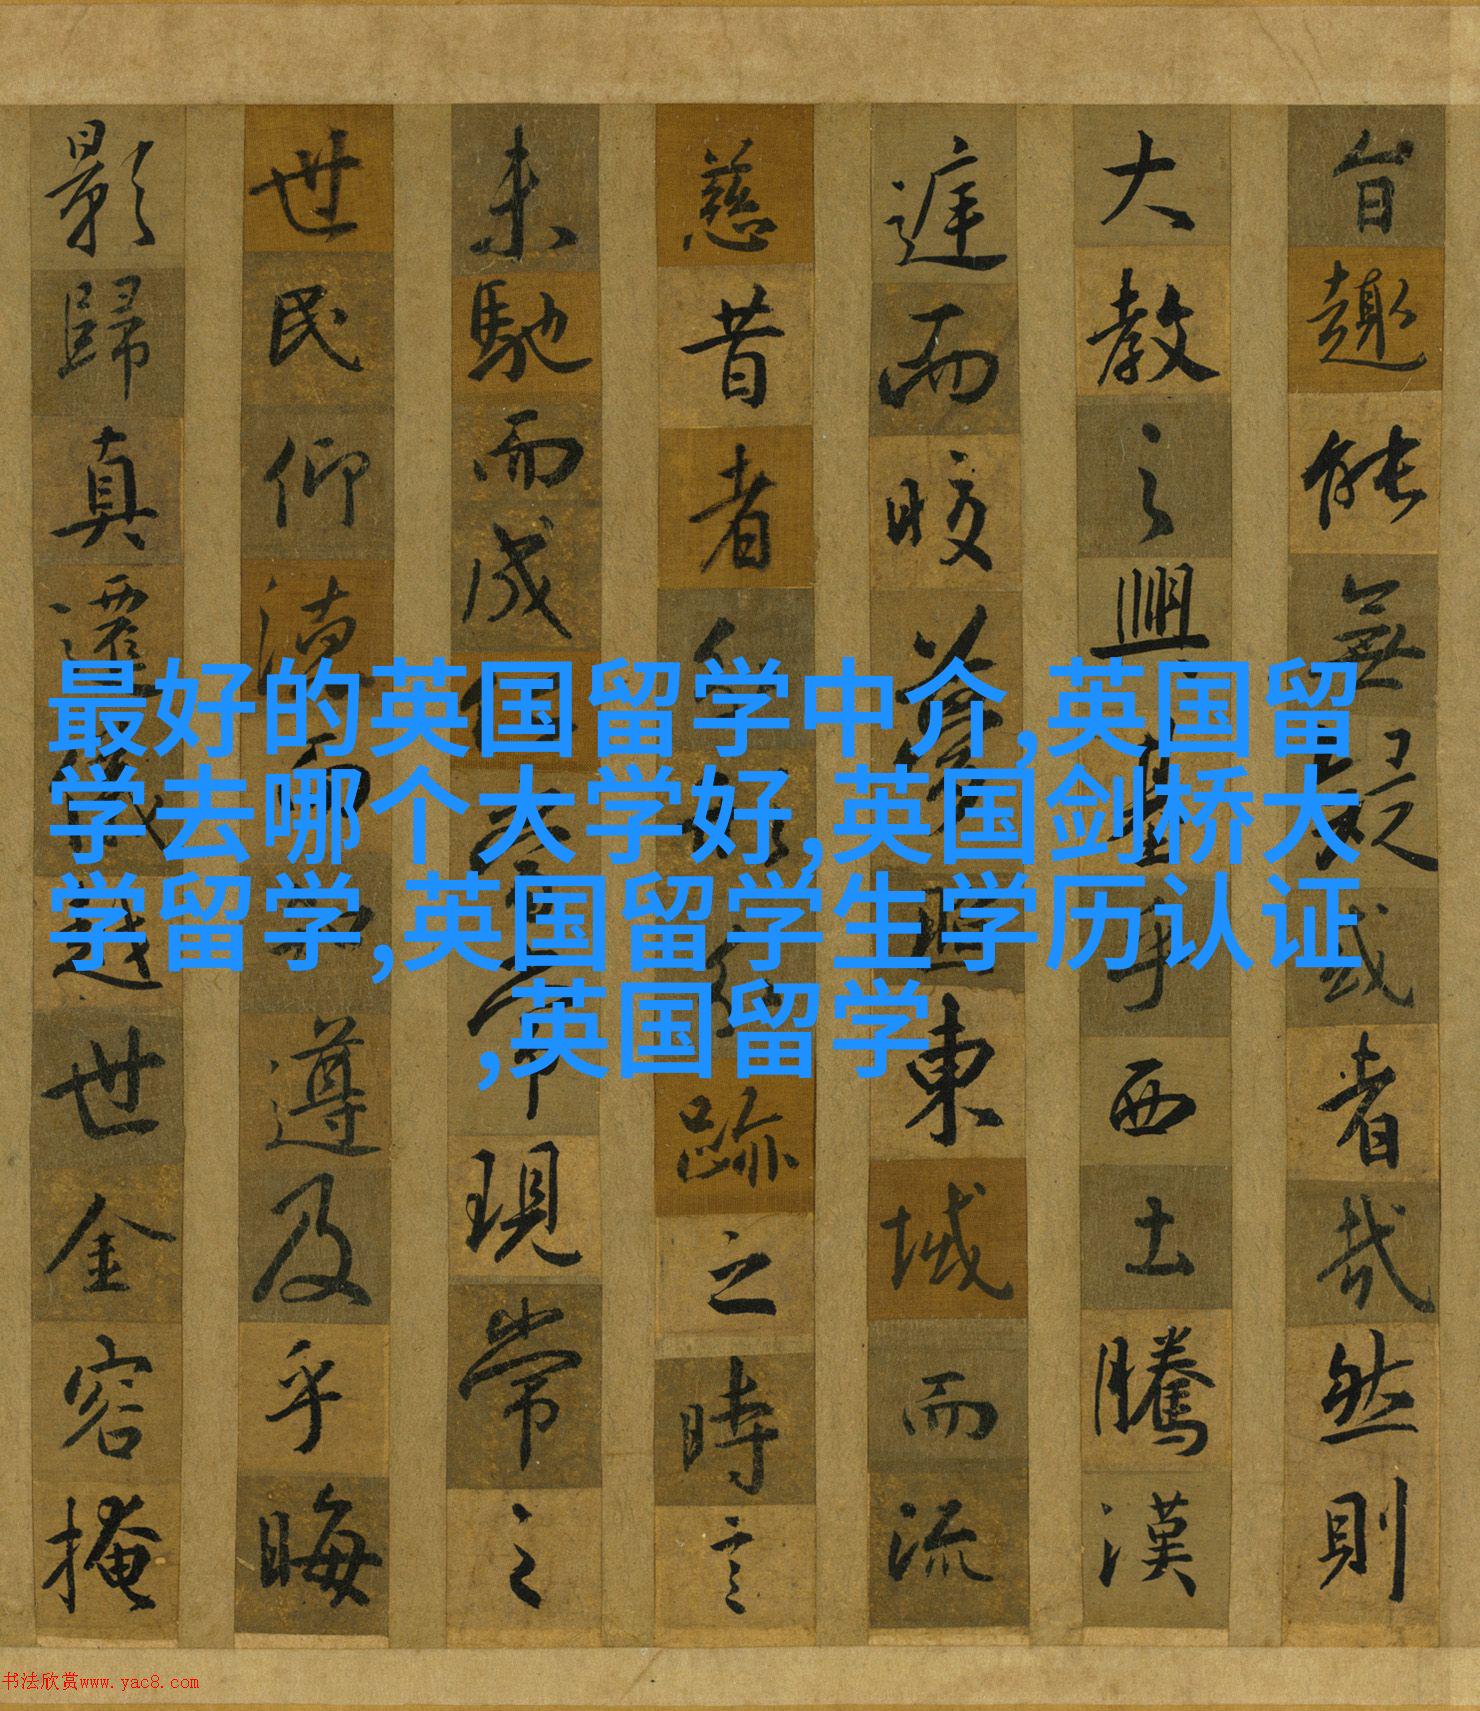 旨趣能無疑或者哉然則
大教之興基乎西土騰漢
庭而皎夢照東域而流
慈昔者分形分跡之時言
未馳而成化當常現常之
世民仰德而知遵及乎晦
影歸真遷儀越世金容掩
最好的英国留学中介,英国留
学去哪个大学好,英国剑桥大
学留学,英国留学生学历认证
,英国留学
书法欣赏www.yac8.com